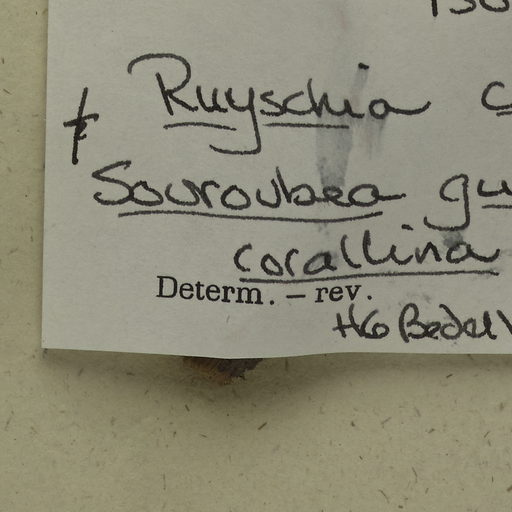 Ruyschia
Souroubea
corallina
Determ. – rev.
HG